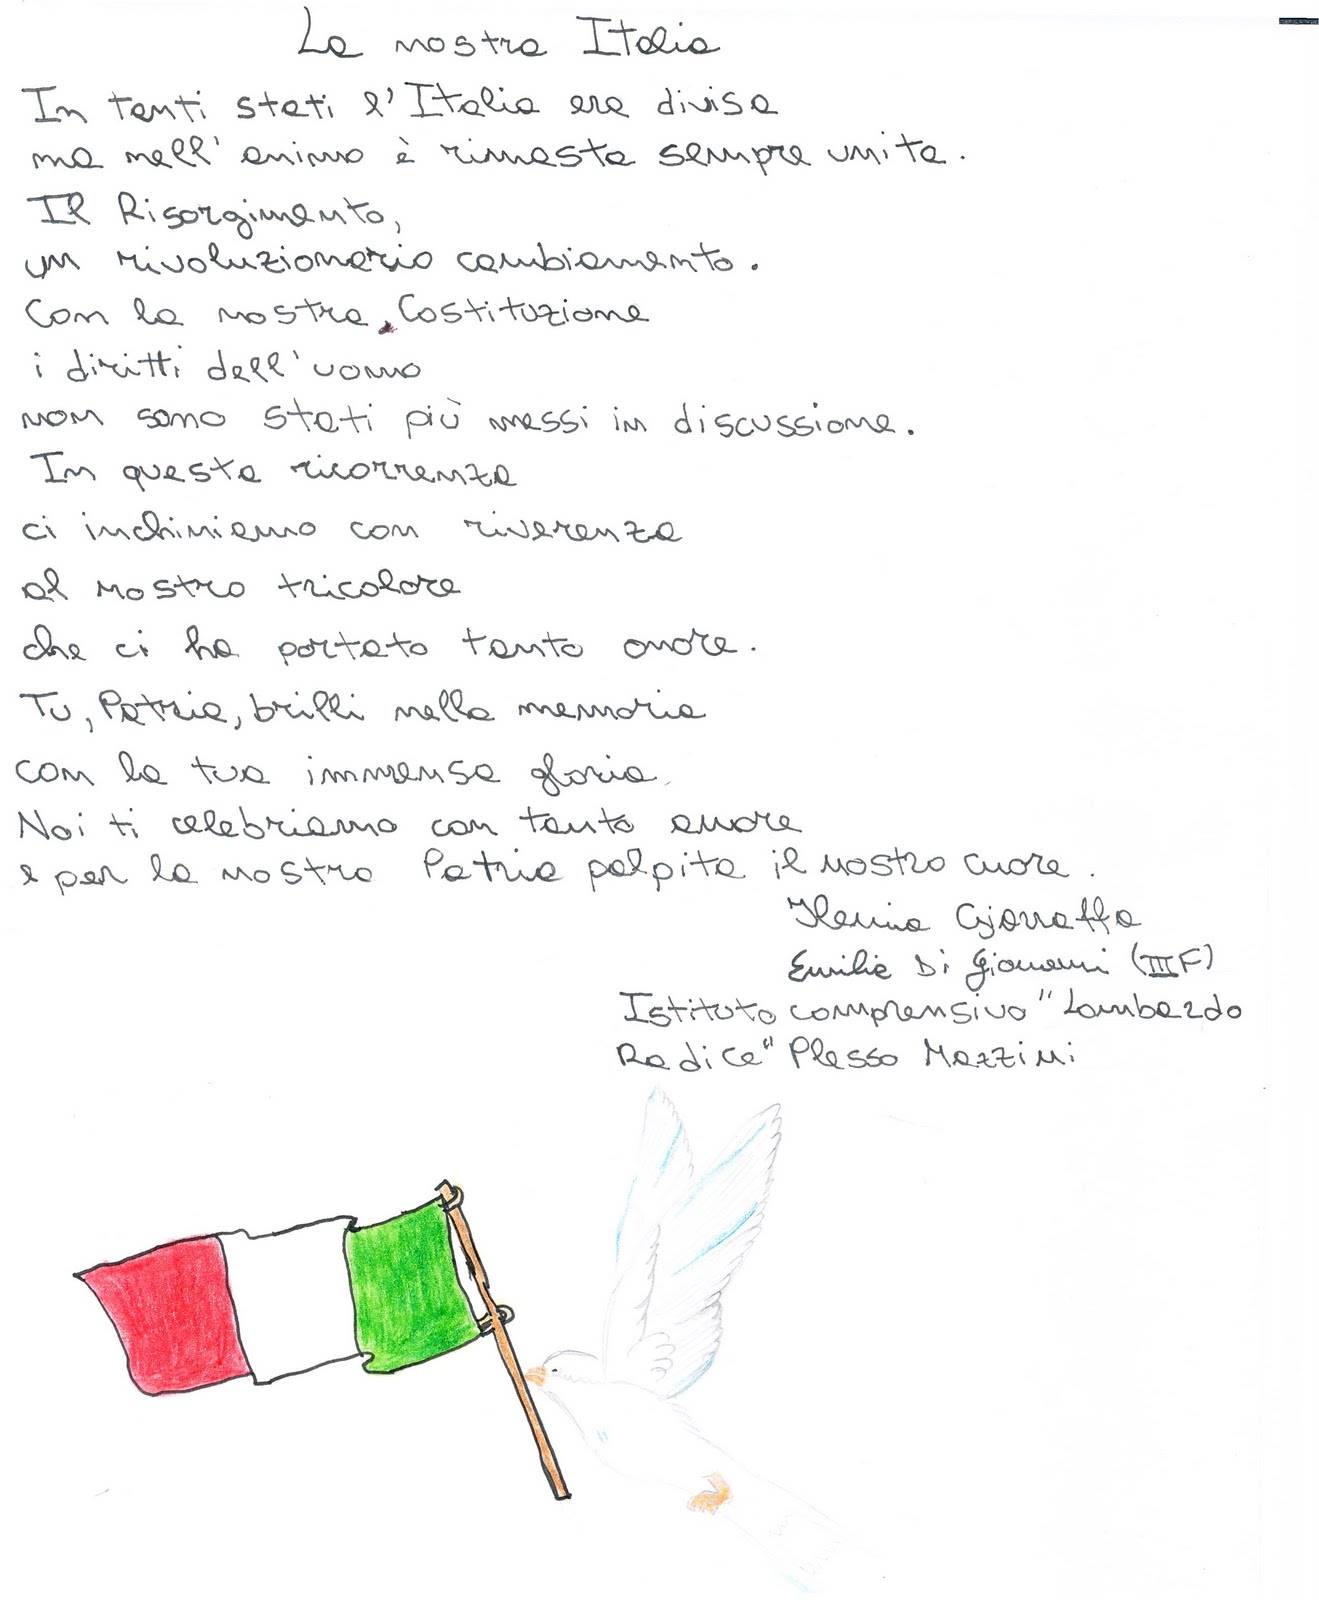 La nostra Italia
In tanti stati l'Italia era divisa
ma nell'animo è rimasta sempre unita.
Il Risorgimento,
un rivoluzionario cambiamento.
Con la nostra Costituzione
i diritti dell'uomo
non sono stati più messi in discussione.
In questa ricorrenza
ci inchiniamo con riverenza
al nostro tricolore
che ci ha portato tanto onore.
Tu, Patria, brilli nella memoria
con la tua immensa gloria.
Noi ti celebriamo con tanto amore
e per la nostra Patria palpita il nostro cuore.
Ilenia
Emilia Di Giovanni (III F)
Istituto comprensivo "Lombardo
Radice" Plesso Mazzini